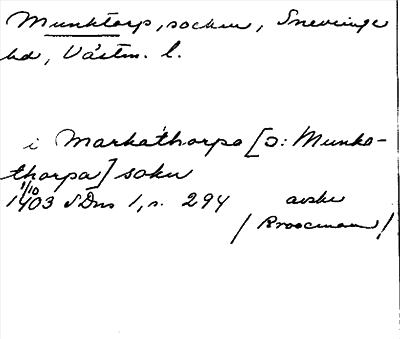 Munktorp, socken, Snevringe
hd, Västm. l.
i Markathorpa [ɔ: Munka-
thorpa] sokn
1/10
1403 SDns 1, s. 294 avskr
/ Kroocman /